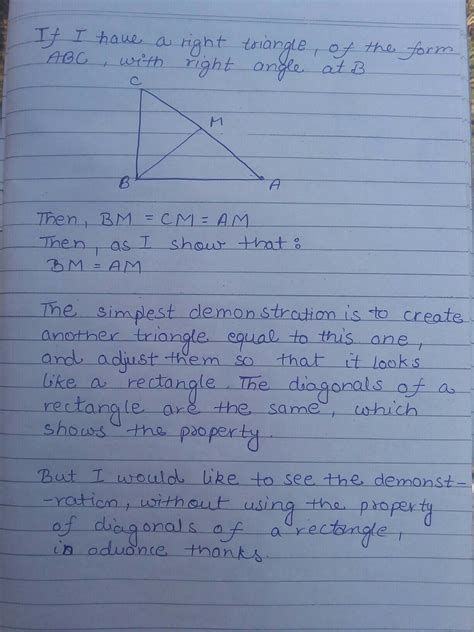 If I have a right triangle, of the form
ABC, with right angle at B
C
M
B
A
Then, BM = CM = AM
Then, as I show that:
BM = AM
The simplest demonstration is to create
another triangle equal to this one,
and adjust them so that it looks
like a rectangle. The diagonals of a
rectangle are the same, which
shows the property.
But I would like to see the demonst-
-ration, without using the property
of diagonals of a rectangle,
in advance thanks.